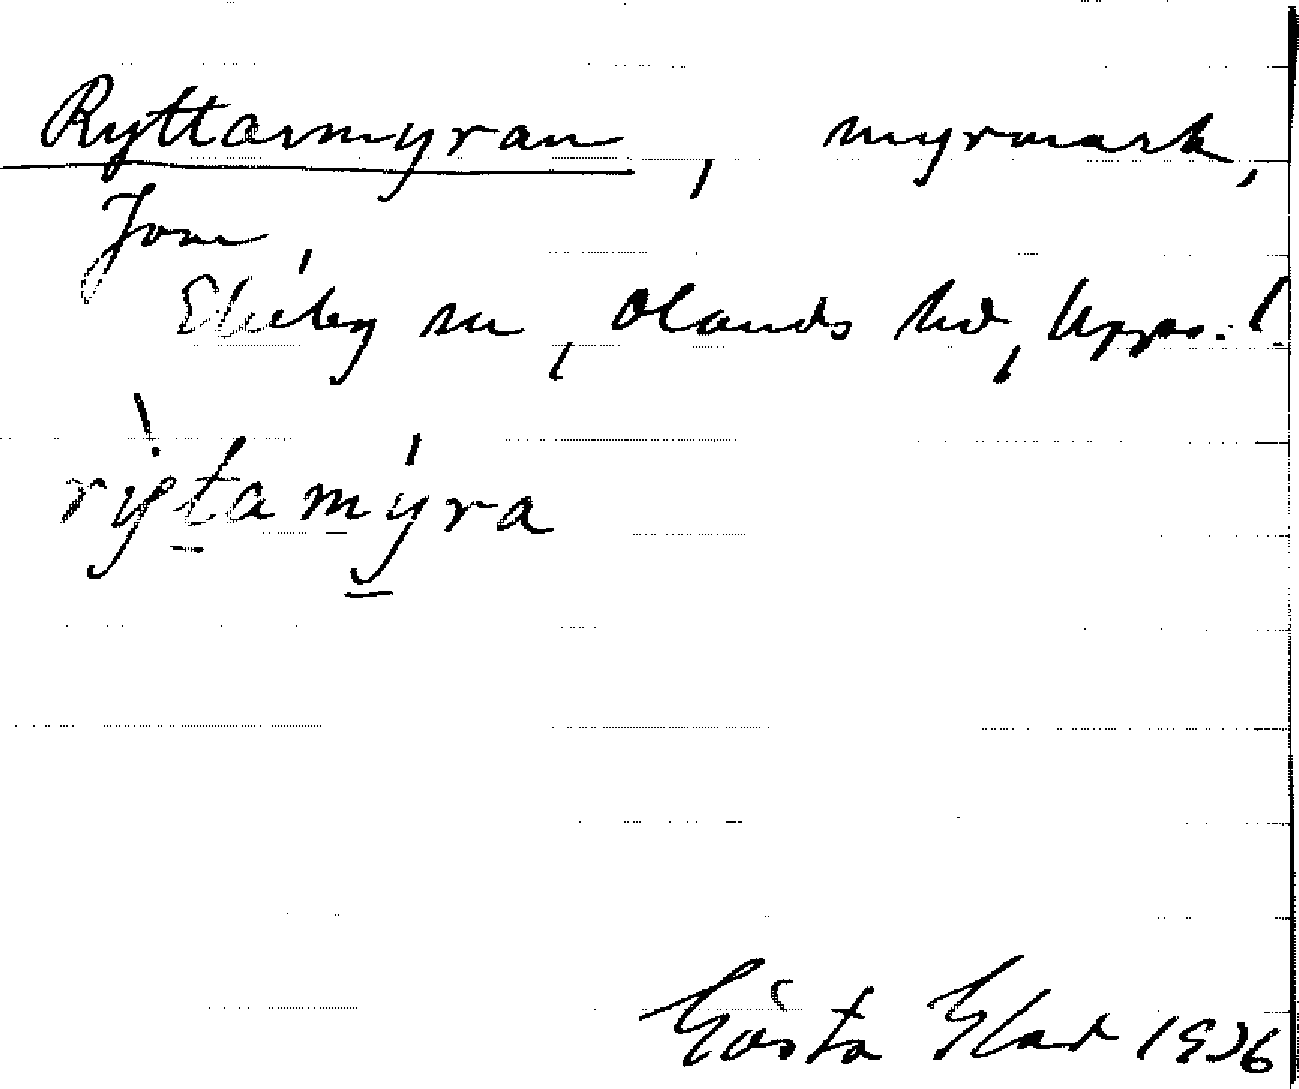 Ryttarmyran, myrmark,
Ekeby sn, Olands hd, Uppl.
rỳtamýra
Gösta 1936